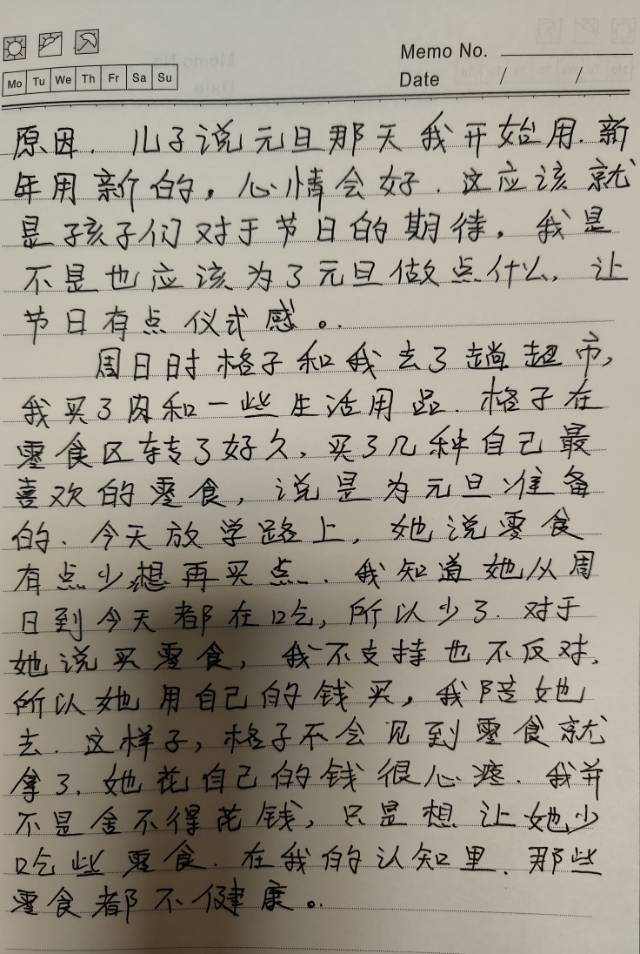 Memo No.
Mo Tu We Th Fr Sa Su
Date / /
原因. 儿子说元旦那天我开始用. 新
年用新的，心情会好. 这应该就
是孩子们对于节日的期待，我是
不是也应该为了元旦做点什么，让
节日有点仪式感。
周日时格子和我去了趟超市，
我买了肉和一些生活用品. 格子在
零食区转了好久，买了几种自己最
喜欢的零食，说是为元旦准备
的. 今天放学路上，她说零食
有点少想再买点. 我知道她从周
日到今天都在吃，所以少了. 对于
她说买零食，我不支持也不反对.
所以她用自己的钱买，我陪她
去. 这样子，格子不会见到零食就
拿了. 她花自己的钱很心疼. 我并
不是舍不得花钱，只是想让她少
吃些零食. 在我的认知里，那些
零食都不健康。